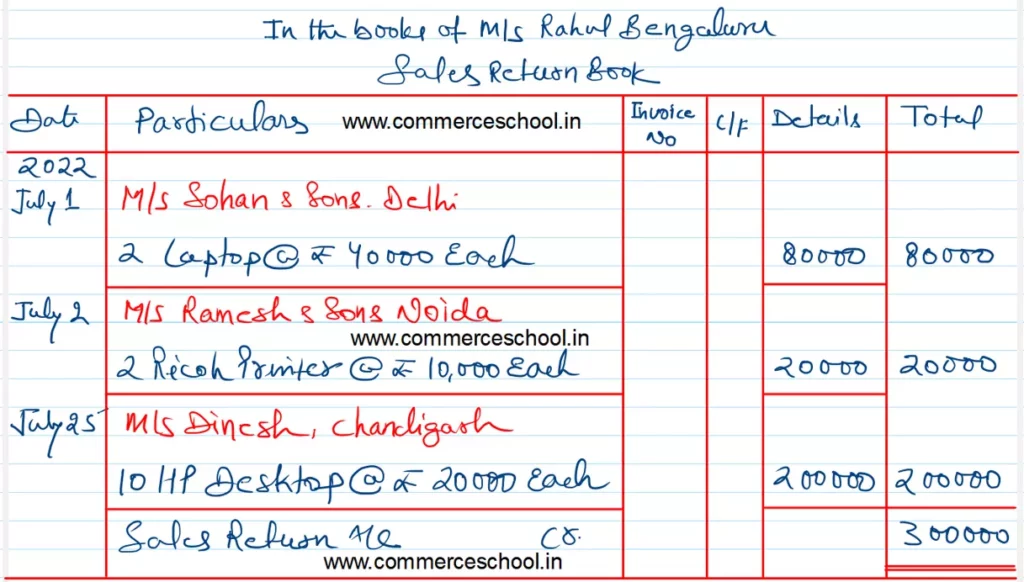 In the books of M/s Rahul Bengaluru
Sales Return Book
Date Particulars www.commerceschool.in Invoice No C/F Details Total
2022
July 1 M/s Sohan & Sons. Delhi
2 Laptop @ ₹ 40000 Each 80000 80000
July 2 M/s Ramesh & Sons Noida
www.commerceschool.in
2 Ricoh Printer @ ₹ 10,000 Each 20000 20000
July 25 M/s Dinesh, Chandigarh
10 HP Desktop @ ₹ 20000 Each 200000 200000
Sales Return A/c Cr. 300000
www.commerceschool.in